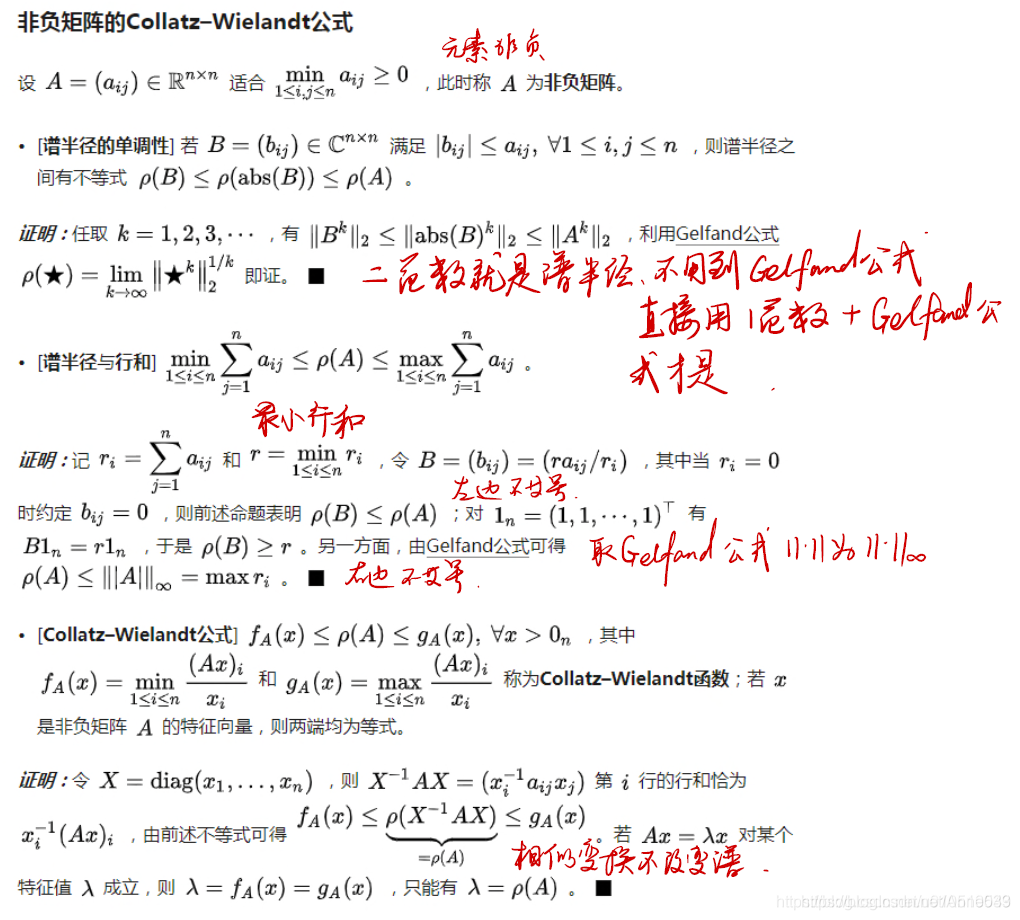 非负矩阵的Collatz–Wielandt公式
元素非负
设 A = (a_{ij}) ∈ ℝ^{n×n} 适合 min_{1≤i,j≤n} a_{ij} ≥ 0 ，此时称 A 为非负矩阵。
• [谱半径的单调性] 若 B = (b_{ij}) ∈ ℂ^{n×n} 满足 |b_{ij}| ≤ a_{ij}, ∀1 ≤ i, j ≤ n ，则谱半径之
间有不等式 ρ(B) ≤ ρ(abs(B)) ≤ ρ(A) 。
证明：任取 k = 1, 2, 3, ⋯ ，有 ‖B^k‖_2 ≤ ‖abs(B)^k‖_2 ≤ ‖A^k‖_2 ，利用Gelfand公式
ρ(★) = lim_{k→∞} ‖★^k‖_2^{1/k} 即证。 ■
二范数就是谱半径、不用到Gelfand公式
直接用1范数+Gelfand公
式才是.
• [谱半径与行和] min_{1≤i≤n} ∑_{j=1}^{n} a_{ij} ≤ ρ(A) ≤ max_{1≤i≤n} ∑_{j=1}^{n} a_{ij} 。
最小行和
证明：记 r_i = ∑_{j=1}^{n} a_{ij} 和 r = min_{1≤i≤n} r_i ，令 B = (b_{ij}) = (ra_{ij}/r_i) ，其中当 r_i = 0
左边不等号.
时约定 b_{ij} = 0 ，则前述命题表明 ρ(B) ≤ ρ(A) ；对 1_n = (1, 1, ⋯, 1)^⊤ 有
B1_n = r1_n ，于是 ρ(B) ≥ r 。另一方面，由Gelfand公式可得
取Gelfand公式 ‖·‖为‖·‖_∞
ρ(A) ≤ |||A|||_∞ = max r_i 。 ■
右边不等号.
• [Collatz–Wielandt公式] f_A(x) ≤ ρ(A) ≤ g_A(x), ∀x > 0_n ，其中
f_A(x) = min_{1≤i≤n} (Ax)_i / x_i 和 g_A(x) = max_{1≤i≤n} (Ax)_i / x_i 称为Collatz–Wielandt函数；若 x
是非负矩阵 A 的特征向量，则两端均为等式。
证明：令 X = diag(x_1, . . . , x_n) ，则 X^{-1}AX = (x_i^{-1}a_{ij}x_j) 第 i 行的行和恰为
x_i^{-1}(Ax)_i ，由前述不等式可得 f_A(x) ≤ ρ(X^{-1}AX) ≤ g_A(x) 。若 Ax = λx 对某个
=ρ(A)
相似变换不改变谱.
特征值 λ 成立，则 λ = f_A(x) = g_A(x) ，只能有 λ = ρ(A) 。 ■